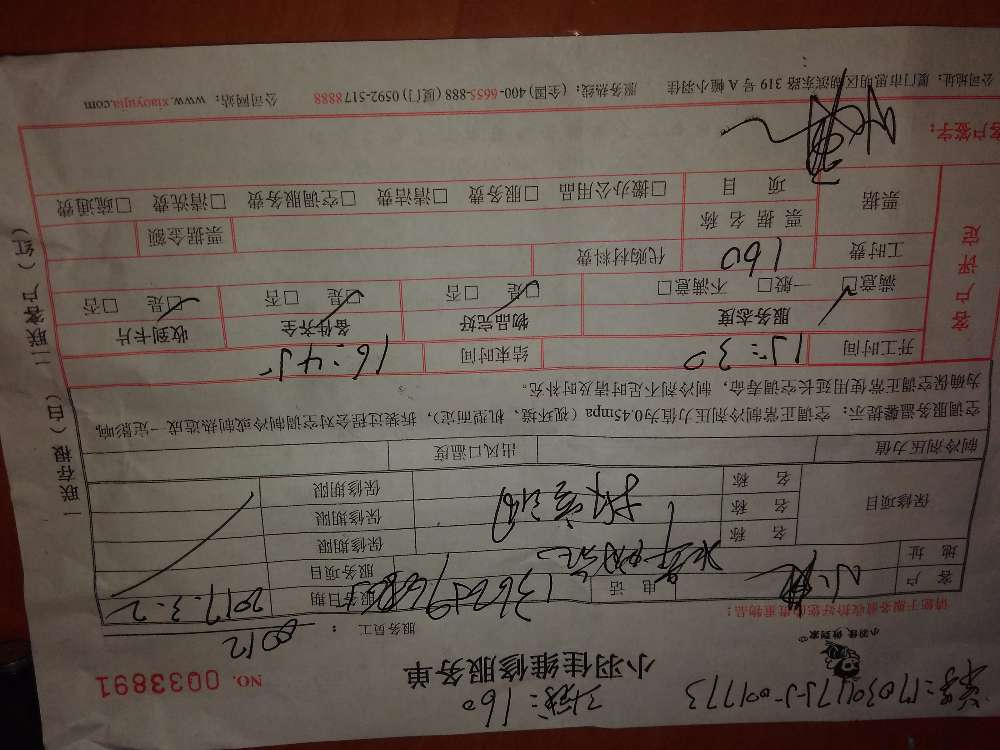 单号:170309175-J-091773
工钱:160
小羽佳,做到家
小羽佳维修服务单
NO. 0033891
请您于服务前收拾好您的贵重物品:
服务员工: 8012
客户
电话
服务日期 2017.3.2
地址
服务项目
保修项目
名称
保修期限
名称 拆空调
保修期限
名称
保修期限
制冷剂压力值
出风口温度
空调服务温馨提示:空调正常制冷剂压力值为0.45mpa(视环境、机型而定),拆装过程会对空调制冷或制热造成一定影响,
为确保空调正常使用延长空调寿命,制冷剂不足时请及时补充。
客户评定
开工时间 15:30 结束时间 16:45
服务态度 物品完好 备件齐全 收到卡片
满意□ 一般□ 不满意□ □是 □否 □是 □否 □是 □否
工时费 160 代购材料费
票据
票据名称
票据金额
项目 □搬办公用品 □服务费 □清洁费 □空调服务费 □清洗费 □疏通费
客户签字:
公司地址:厦门市思明区湖滨东路 319 号 A 幢小羽佳 服务热线:(全国)400-6655-888 (厦门)0592-5178888 公司网站:www.xiaoyujia.com
一联存根(白) 二联客户(红)